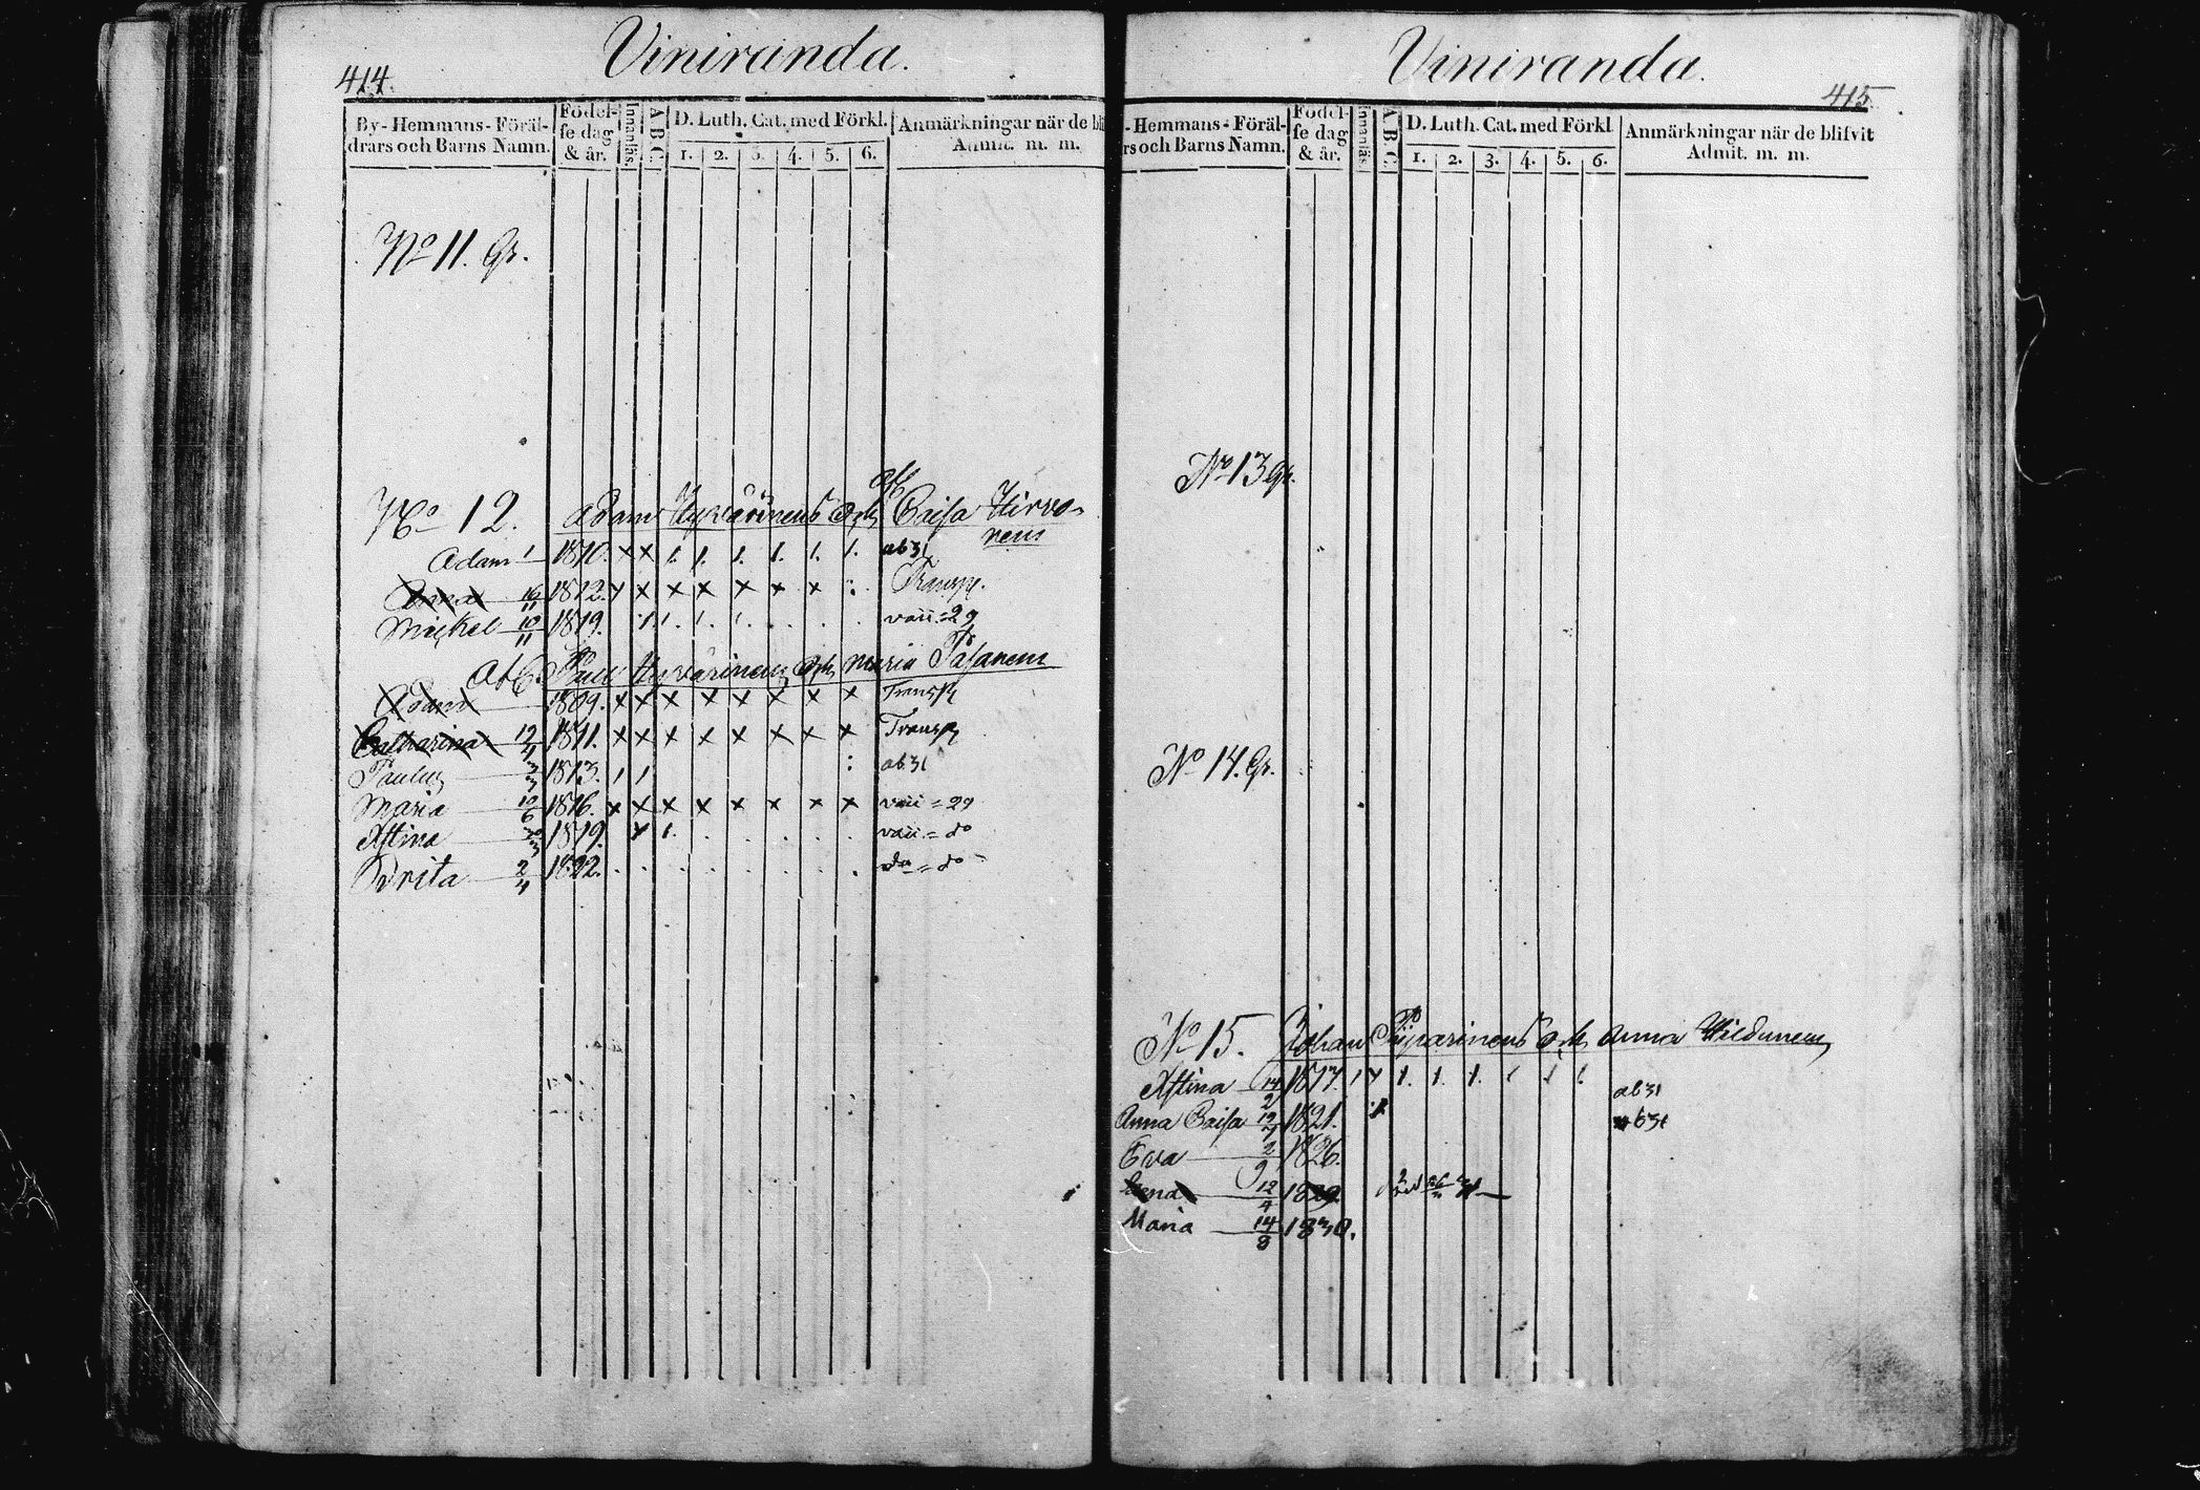 414.
Viniranda.
By- Hemmans- Föräl-
drars och Barns Namn.
Födel-
se dag
& år.
Innanläs.
A B C.
D. Luth. Cat. med Förkl.
1. 2. 3. 4. 5. 6.
Anmärkningar när de bli
Admit. m. m.
No 11. Gr.
No 12. Adam Hyvärinens och Caisa Hirvo-
nens
Adam 1 1810. x x 1. 1. 1. 1. 1. 1. ab 31
Anna 19/11 1812. x x x x x x x : Transp.
Michel 10/11 1819. vaii = 29
Afl. Paul Hyvärinens och Maria Pasanens
Adam 1809. x x x x x x x x Transp
Catharina 12/4 1811. x x x x x x x x Transp
Paulus 3/3 1813. 1 1 : ab 31
Maria 10/6 1816. x x x x x x x x vaii = 29
Kstina 20/3 1819. x 1. vaii = do
Brita 2/4 1822. do = do
Viniranda.
415.
- Hemmans- Föräl-
rs och Barns Namn.
Födel-
se dag
& år.
Innanläs.
A B C.
D. Luth. Cat. med Förkl
1. 2. 3. 4. 5. 6.
Anmärkningar när de blifvit
Admit. m. m.
No 13 Gr.
No 14. Gr.
No 15. Johan Piiparinens och Anna
Kstina 14/2 1817. 1 x 1. 1. 1. 1 1 1. ab 31
Anna Caisa 19/7 1821. ab 31
Eva 2/9 1826.
Lena 12/4 1829. död
Maria 14/8 1830.